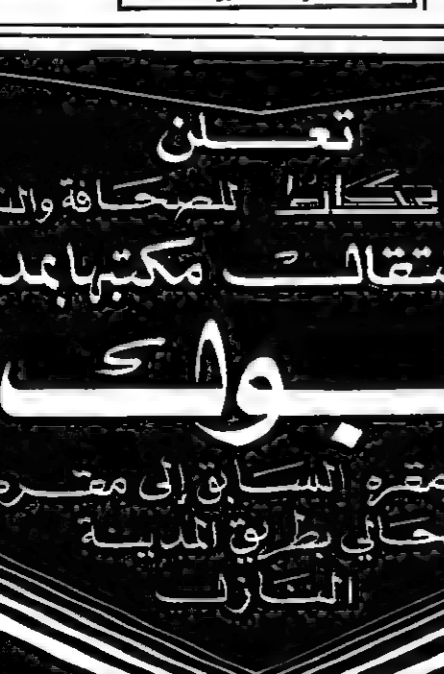 تعلن
عكاظ للصحافة والنـ
ـتقال مكتبها بمد
ـبوك
مقره السابق إلى مقره
ـحالي بطريق المدينة
النازل